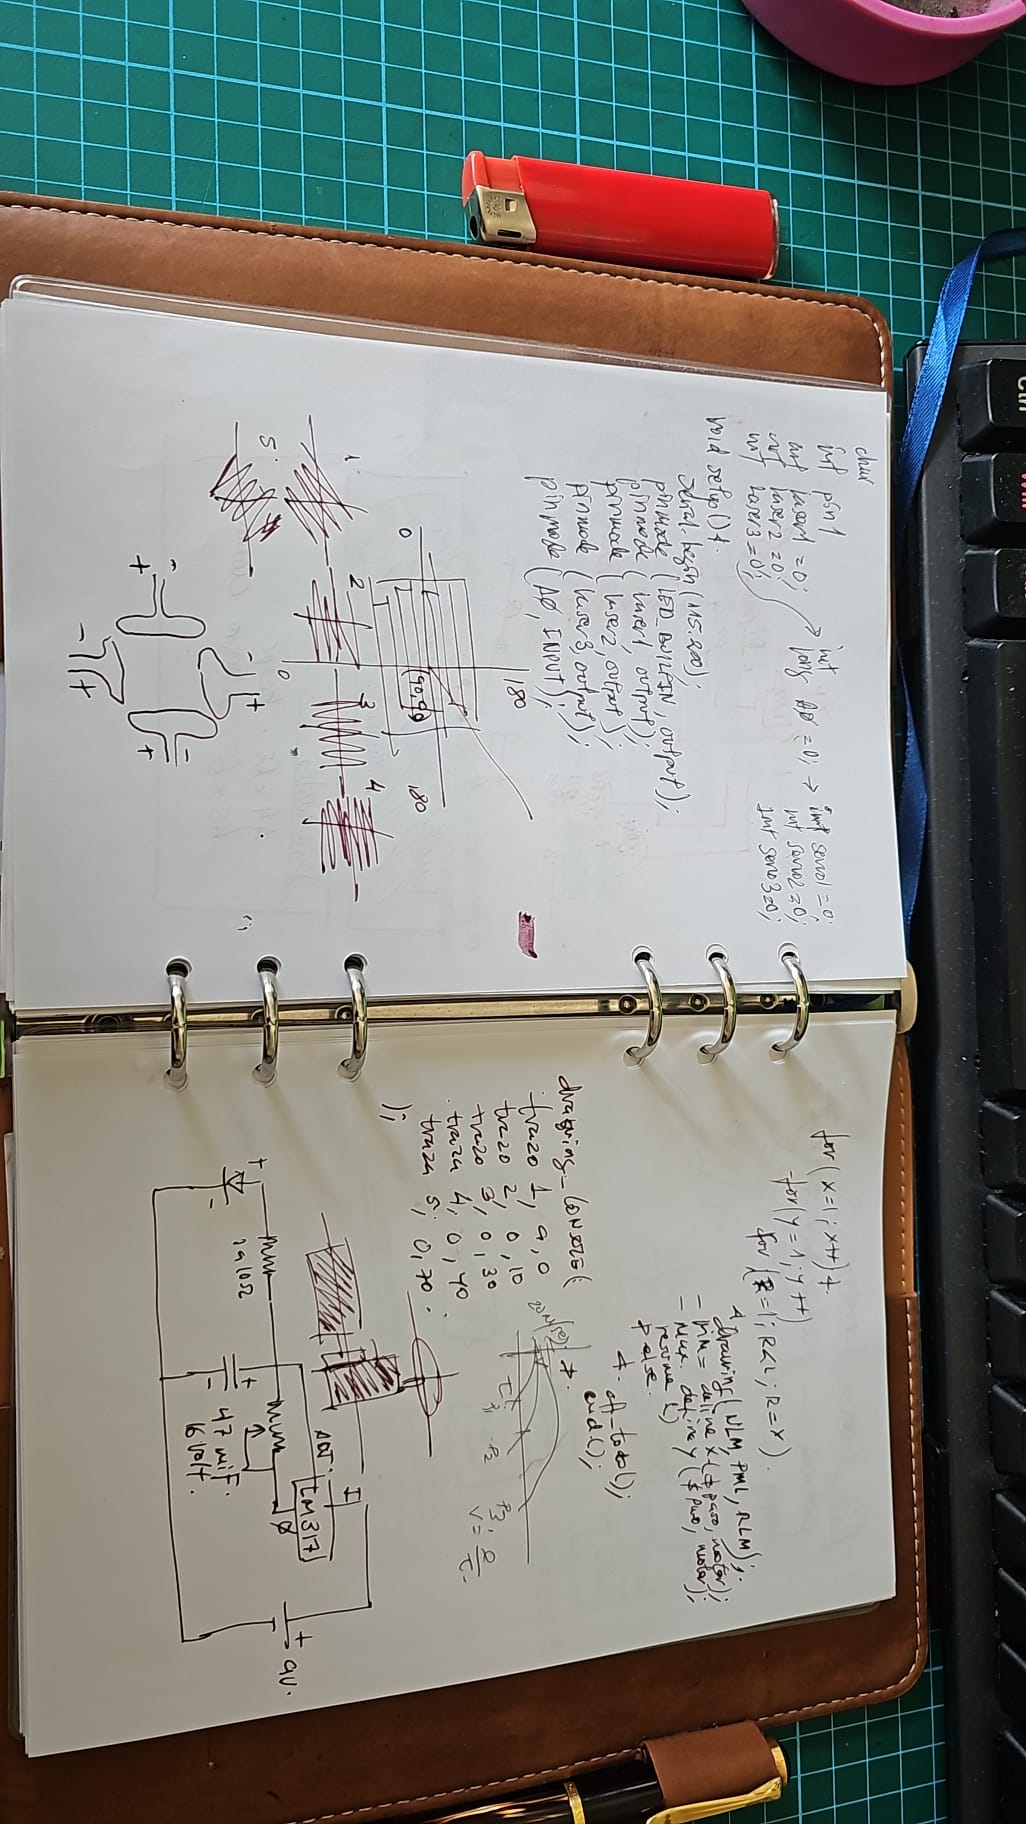 char
int pin1
int laser1 = 0;
int laser2 = 0;
int laser3 = 0;
int
long A0 = 0; → int servo1 = 0;
int servo2 = 0;
int servo3 = 0;
void setup() {
Serial.begin (115.200);
pinmode (LED_BUILTIN, output);
pinmode (laser1, output);
pinmode (laser2, output);
pinmode (laser3, output);
pinmode (A0, INPUT);
180
0
(90,90)
180
0
1
2
3
4
5
+ -
- +
- +
+ -
for (x=1; x++) {
for (y=1; y++)
for (R=1; R<L; R=x)
drawing (NLM, PML, RLM);
- min = define x ($paso, motor);
- max. define y ($paso, motor);
resume ()
} else.
}. off_todo();
}. end();
drawing_console (
trazo 1, 0, 0
trazo 2, 0, 10
trazo 3, 0, 30
trazu 4, 0, 40
trazu 5, 0, 70.
);
V = e/t
+ -
Ω
+ -
47 mif.
16 Volt.
ADJ
I
LM317
+ 9V.